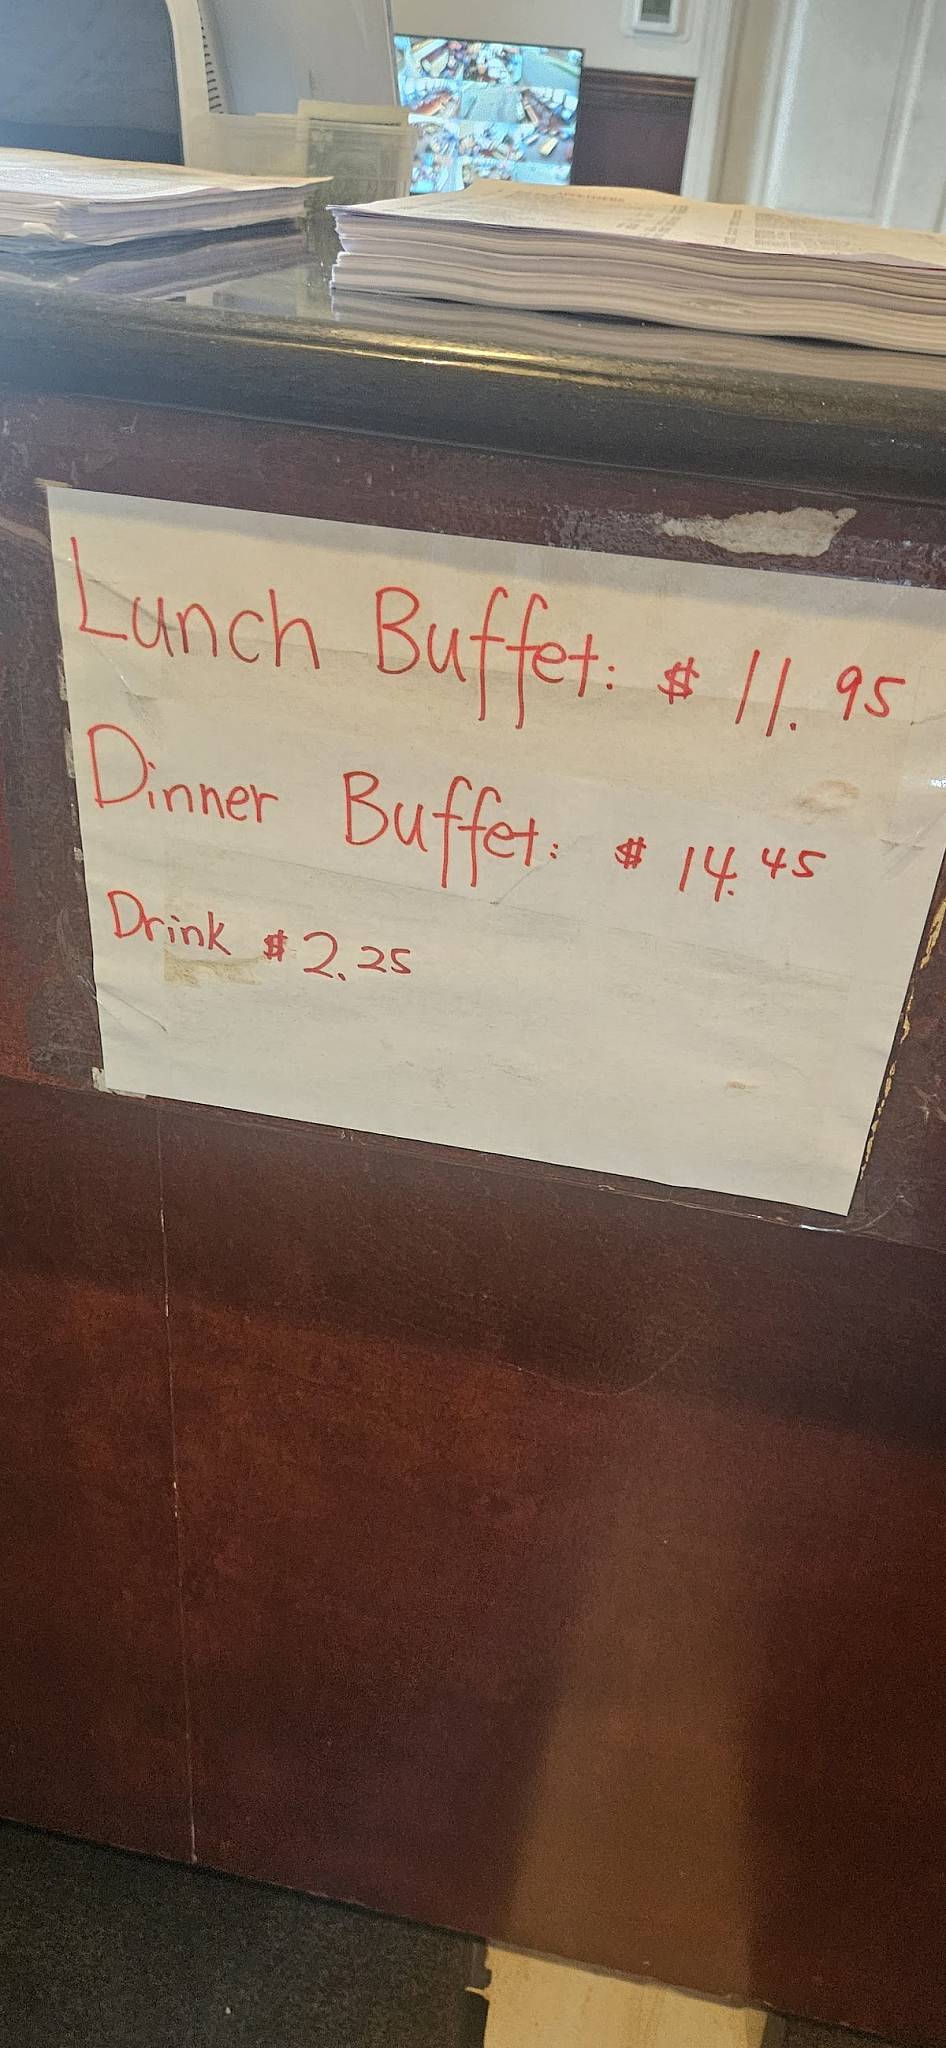 Lunch Buffet: $ 11.95
Dinner Buffet: $ 14.45
Drink $2.25